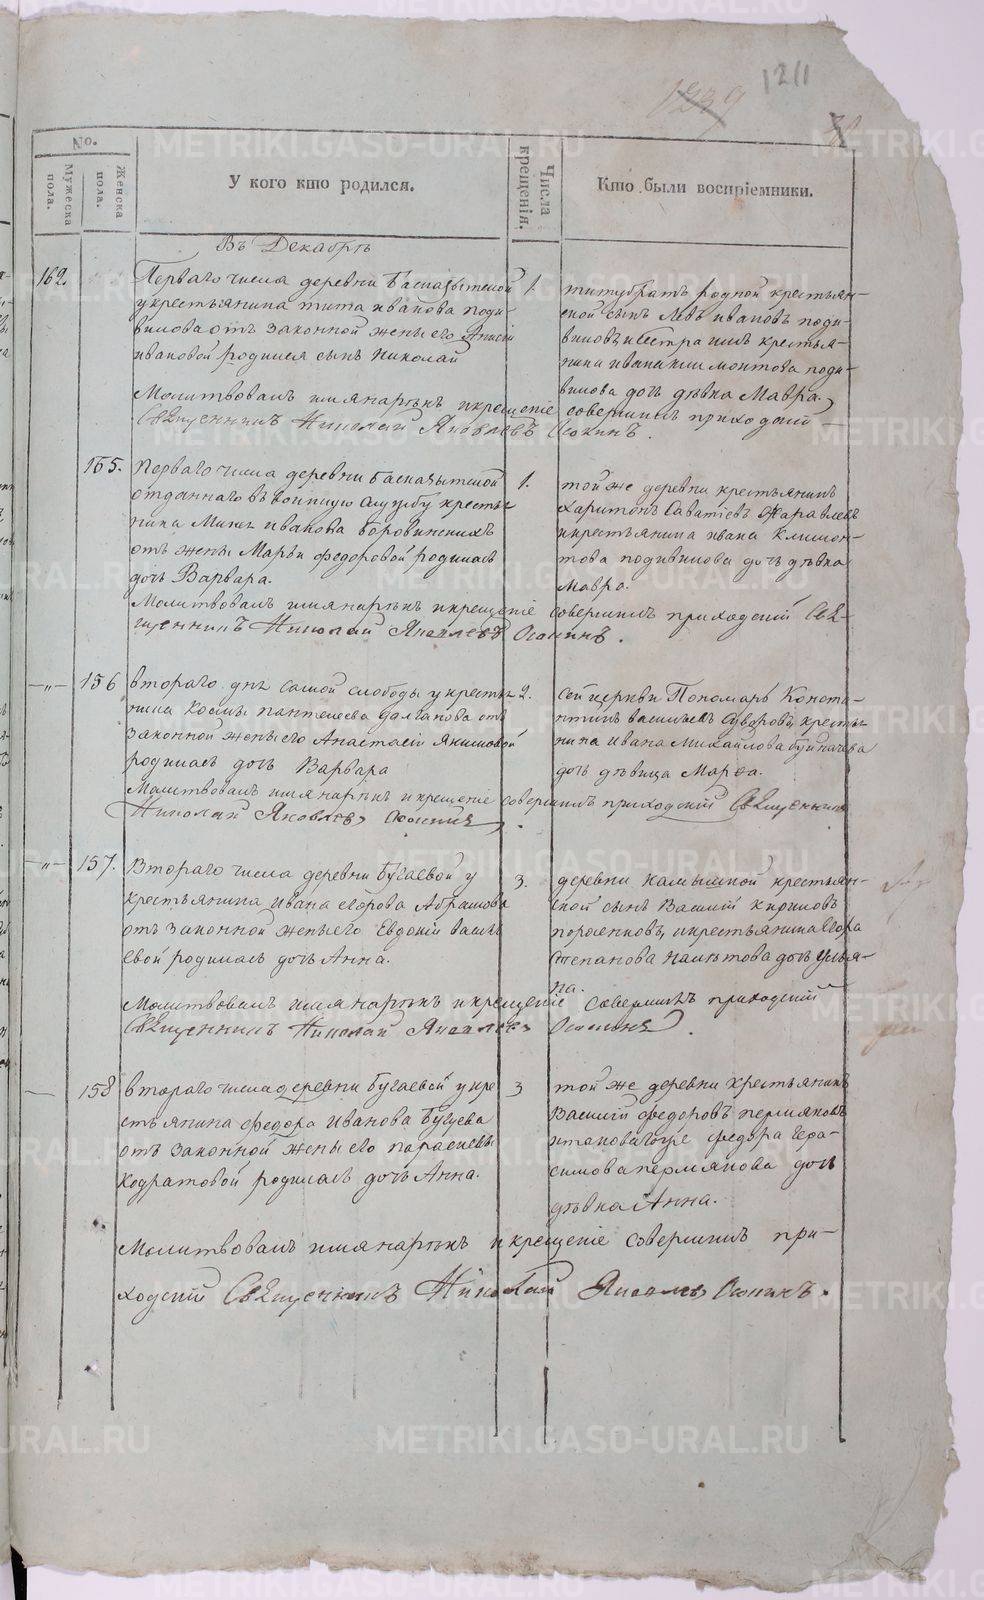 1239 1211
No.
Мужеска пола.
Женска пола.
У кого кто родился.
Числа крещенія.
Кто были воспріемники.
Въ Декабрѣ
162.
Перваго числа деревни Басказытской
у крестьянина тита иванова поди-
вилова отъ законной жены его Анисіи
ивановой родился сынъ Николай
1.
титу братъ родной крестьян-
ской сынъ Левъ ивановъ поди-
виловъ
нина ивана климонтова поди-
вилова дочь дѣвка Мавра.
Молитвовалъ имянарѣкъ и крещеніе совершилъ приходскій
Священникъ Николай Яковлевъ Осокинъ.
155.
Перваго числа деревни
отданнаго въ воинскую службу кресть-
нина иванова Боровинскихъ
отъ жены Марьи федоровой родилась
дочь Варвара.
1.
той же деревни крестьянинъ
Харитонъ Саватіевъ Жаравлевъ
и крестьянина ивана Климон-
това подивилова дочь дѣвка
Мавра.
Молитвовалъ имянарѣкъ и крещеніе совершилъ приходскій Свя-
щенникъ Николай Яковлевъ Осокинъ.
-"- 156
втораго дня самой слободы у кресть-
нина Космы пантелеева отъ
законной жены его Анастасіи Якимовой
родилась дочь Варвара
2.
сей церкви Пономарь Конста-
нтинъ васильевъ Суворовъ, кресть-
нина ивана Михайлова
дочь дѣвица Марѳа.
Молитвовалъ имянарѣкъ и крещеніе совершилъ приходскій Священникъ
Николай Яковлевъ Осокинъ.
-"- 157.
Втораго числа деревни Бугаевой у
крестьянина ивана егорова Абрамова
отъ законной жены его Евдокіи василь
евой родилась дочь Анна.
3.
деревни камышной крестьян-
ской сынъ Василій кириловъ
и крестьянина Егора
степанова дочь улья-
на.
Молитвовалъ имянарѣкъ и крещеніе совершилъ приходскій
Священникъ Николай Яковлевъ Осокинъ.
— 158
втораго числа деревни Бугаевой у кре
стьянина федора иванова Бугаева
отъ законной жены его параскевы
кодратовой родилась дочь Анна.
3
той же деревни крестьянинъ
Василій федоровъ пермяковъ
и таковагоже федора Гера-
симова пермякова дочь
дѣвка Анна.
Молитвовалъ имянарѣкъ и крещеніе совершилъ при-
ходскій Священникъ Николай Яковлевъ Осокинъ.
METRIKI.GASO-URAL.RU